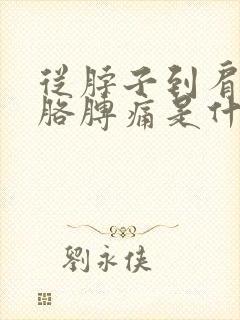 從脖子到肩
胳脾痛是什
劉永俠